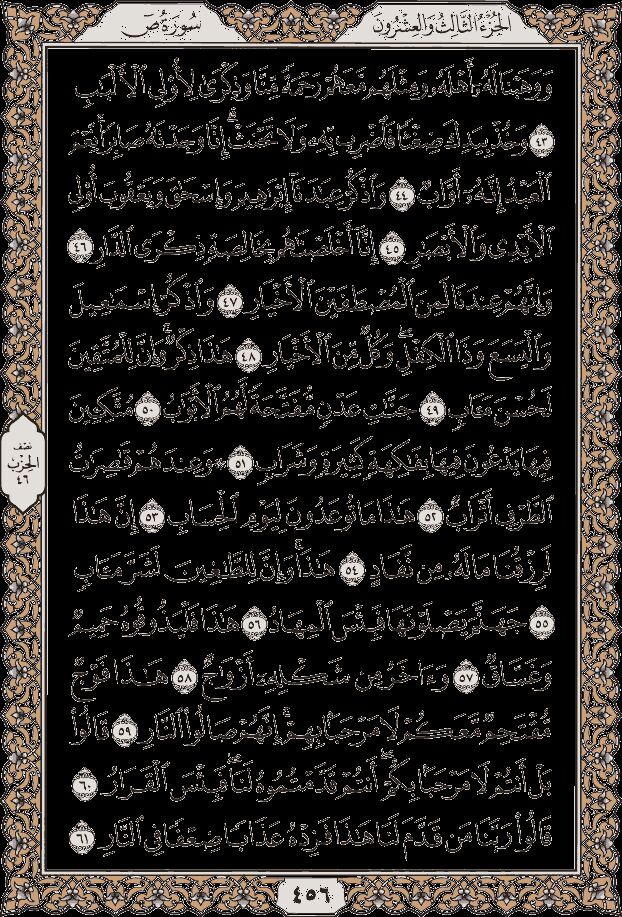 الجزء الثالث والعشرون
سورة ص
وَوَهَبْنَا لَهُۥٓ أَهْلَهُۥ وَمِثْلَهُم مَّعَهُمْ رَحْمَةً مِّنَّا وَذِكْرَىٰ لِأُو۟لِى ٱلْأَلْبَٰبِ
٤٣ وَخُذْ بِيَدِكَ ضِغْثًا فَٱضْرِب بِّهِۦ وَلَا تَحْنَثْ ۗ إِنَّا وَجَدْنَٰهُ صَابِرًا ۚ نِّعْمَ
ٱلْعَبْدُ ۖ إِنَّهُۥٓ أَوَّابٌ ٤٤ وَٱذْكُرْ عِبَٰدَنَآ إِبْرَٰهِيمَ وَإِسْحَٰقَ وَيَعْقُوبَ أُو۟لِى
ٱلْأَيْدِى وَٱلْأَبْصَٰرِ ٤٥ إِنَّآ أَخْلَصْنَٰهُم بِخَالِصَةٍ ذِكْرَى ٱلدَّارِ ٤٦
وَإِنَّهُمْ عِندَنَا لَمِنَ ٱلْمُصْطَفَيْنَ ٱلْأَخْيَارِ ٤٧ وَٱذْكُرْ إِسْمَٰعِيلَ
وَٱلْيَسَعَ وَذَا ٱلْكِفْلِ ۖ وَكُلٌّ مِّنَ ٱلْأَخْيَارِ ٤٨ هَٰذَا ذِكْرٌ ۚ وَإِنَّ لِلْمُتَّقِينَ
لَحُسْنَ مَـَٔابٍ ٤٩ جَنَّٰتِ عَدْنٍ مُّفَتَّحَةً لَّهُمُ ٱلْأَبْوَٰبُ ٥٠ مُتَّكِـِٔينَ
فِيهَا يَدْعُونَ فِيهَا بِفَٰكِهَةٍ كَثِيرَةٍ وَشَرَابٍ ٥١ وَعِندَهُمْ قَٰصِرَٰتُ
ٱلطَّرْفِ أَتْرَابٌ ٥٢ هَٰذَا مَا تُوعَدُونَ لِيَوْمِ ٱلْحِسَابِ ٥٣ إِنَّ هَٰذَا
لَرِزْقُنَا مَا لَهُۥ مِن نَّفَادٍ ٥٤ هَٰذَا ۚ وَإِنَّ لِلطَّٰغِينَ لَشَرَّ مَـَٔابٍ
٥٥ جَهَنَّمَ يَصْلَوْنَهَا فَبِئْسَ ٱلْمِهَادُ ٥٦ هَٰذَا فَلْيَذُوقُوهُ حَمِيمٌ
وَغَسَّاقٌ ٥٧ وَءَاخَرُ مِن شَكْلِهِۦٓ أَزْوَٰجٌ ٥٨ هَٰذَا فَوْجٌ
مُّقْتَحِمٌ مَّعَكُمْ ۖ لَا مَرْحَبًۢا بِهِمْ ۚ إِنَّهُمْ صَالُوا۟ ٱلنَّارِ ٥٩ قَالُوا۟
بَلْ أَنتُمْ لَا مَرْحَبًۢا بِكُمْ ۖ أَنتُمْ قَدَّمْتُمُوهُ لَنَا ۖ فَبِئْسَ ٱلْقَرَارُ ٦٠
قَالُوا۟ رَبَّنَا مَن قَدَّمَ لَنَا هَٰذَا فَزِدْهُ عَذَابًا ضِعْفًا فِى ٱلنَّارِ ٦١
نصف
الحزب
٤٦
٤٥٦